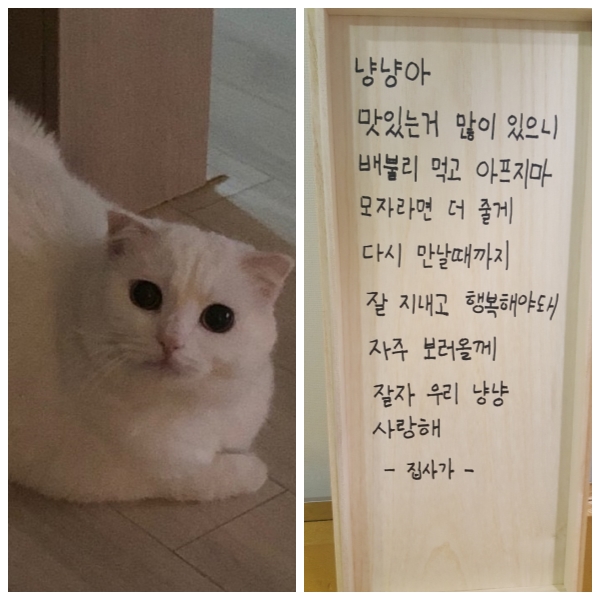 냥냥아
맛있는거 많이 있으니
배불리 먹고 아프지마
모자라면 더 줄게
다시 만날때까지
잘 지내고 행복해야도ㅐ
자주 보러올께
잘자 우리 냥냥
사랑해
- 집사가 -